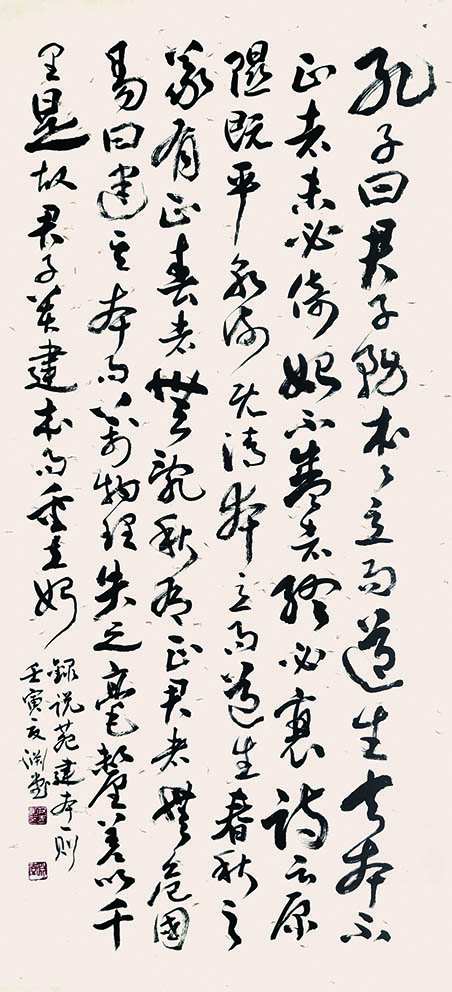 孔子曰君子務本々立而道生夫本不
正者末必倚始不盛者終必衰詩云原
隰既平泉流既清本立而道生春秋之
義有正春者無亂秋有正君者無危國
易曰建其本而萬物理失之毫釐差以千
里是故君子貴建本而重立始
録说苑建本一则
壬寅夏